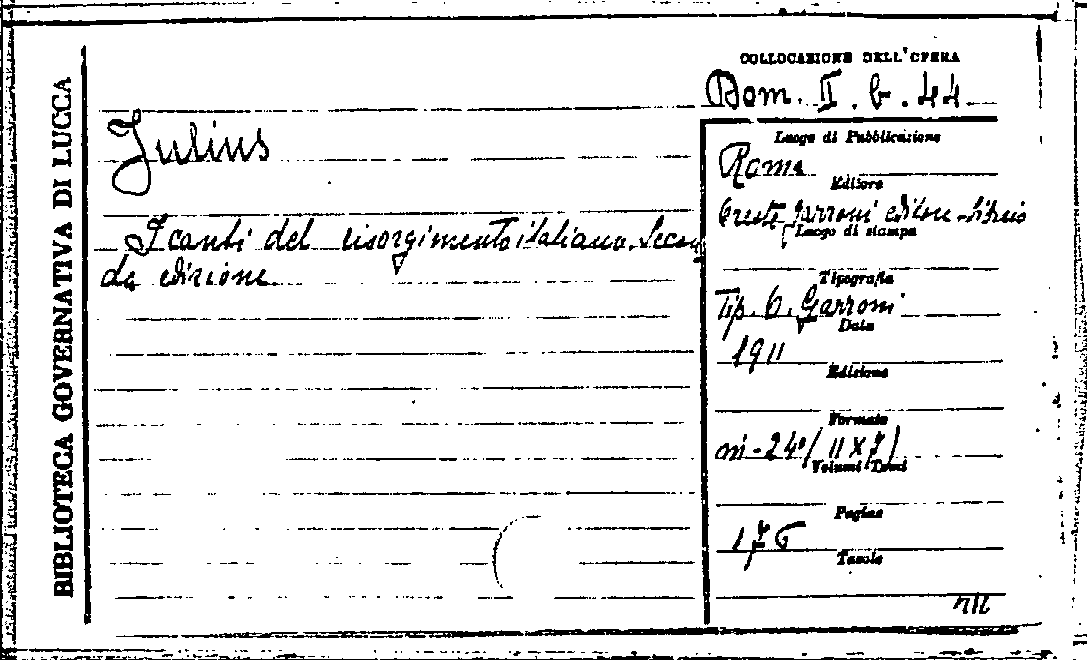 BIBLIOTECA GOVERNATIVA DI LUCCA
COLLOCAZIONE DELL'OPERA
Bom. II. b. 44
Julius
I canti del risorgimento italiano. Secon
da edizione
Luogo di Pubblicazione
Roma
Editore
Oreste Garroni editore-libraio
Luogo di stampa
Tipografia
Tip. O. Garroni
Data
1911
Edizione
Formato
in-24°(11X7)
Volumi-Tomi
Pagine
176
Tavole